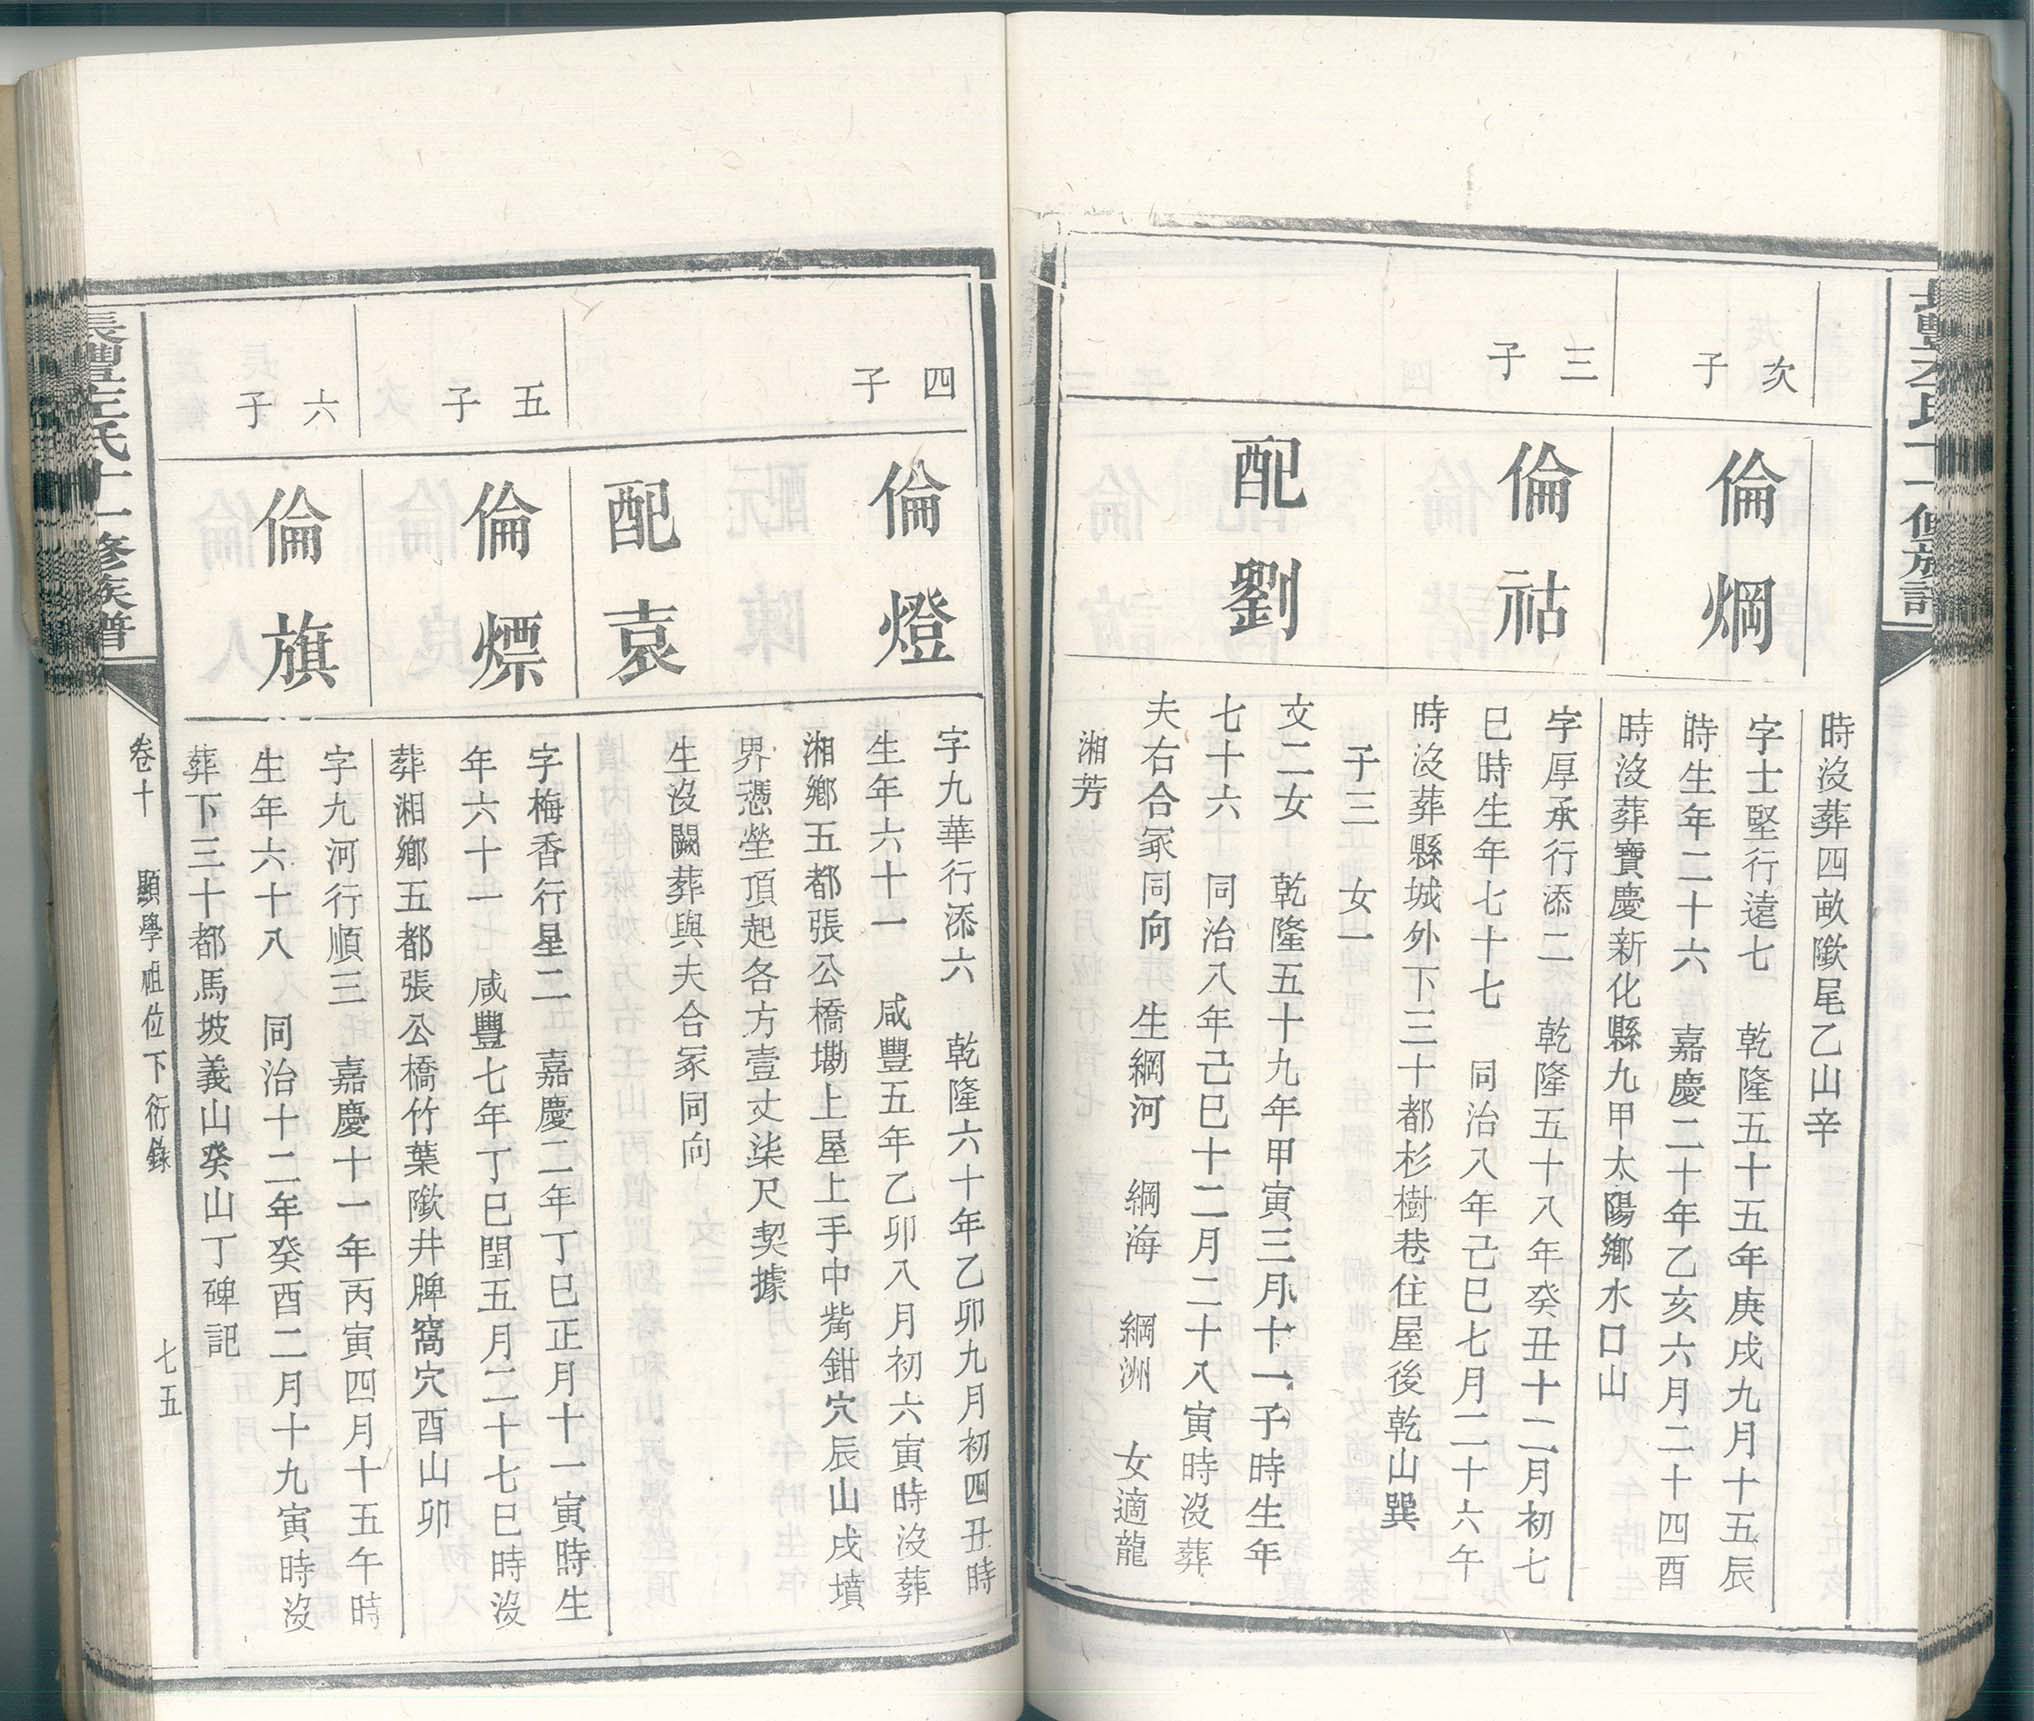 時沒葬四畝隞尾乙山辛
次子
倫焵
字士堅行遠七 乾隆五十五年庚戌九月十五辰
時生年二十六 嘉慶二十年乙亥六月二十四酉
時沒葬寶慶新化縣九甲太陽鄉水口山
三子
倫祜
字厚承行添二 乾隆五十八年癸丑十二月初七
巳時生年七十七 同治八年己巳七月二十六午
時沒葬縣城外下三十都杉樹巷住屋後乾山巽
子三 女一
配劉
文二女 乾隆五十九年甲寅三月十一子時生年
七十六 同治八年己巳十二月二十八寅時沒葬
夫右合冢同向 生綱河 綱海 綱洲 女適龍
湘芳
四子
倫燈
字九華行添六 乾隆六十年乙卯九月初四丑時
生年六十一 咸豐五年乙卯八月初六寅時沒葬
湘鄉五都張公橋塘上屋上手中嘴鉗穴辰山戌墳
界憑塋頂起各方壹丈柒尺契據
配袁
生沒闕葬與夫合冢同向
五子
倫熛
字梅香行星二 嘉慶二年丁巳正月十一寅時生
年六十一 咸豐七年丁巳閏五月二十七巳時沒
葬湘鄉五都張公橋竹葉隞井脾窩穴酉山卯
六子
倫旗
字九河行順三 嘉慶十一年丙寅四月十五午時
生年六十八 同治十二年癸酉二月十九寅時沒
葬下三十都馬坡義山癸山丁碑記
長豐左氏十一修族譜
卷十 顯學祖位下衍錄 七五